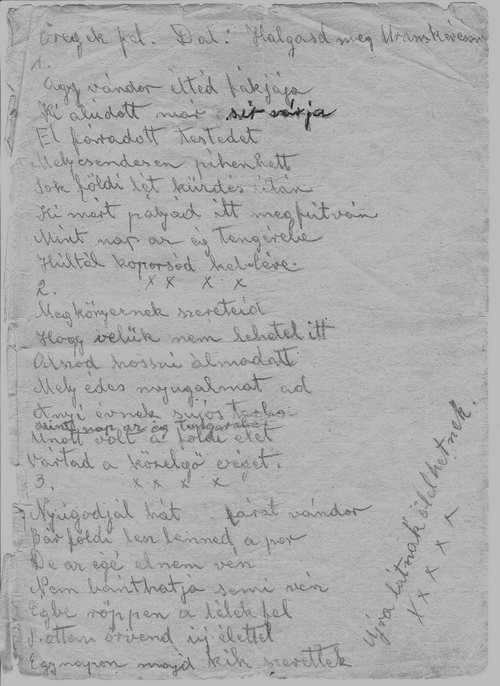 Öregek fel. Dal: Halgasd meg Uram kérésem
1.
Agy vándor élted fákjája
Ki aludott már sír várja
El fáradott testedet
Hely csendesen pihenhett
Sok földi lét küzdés után
Ki mért pályád itt megfutván
Mint nap az ég tengerébe
Hultál koporsód kebelére.
x x x x
2.
Megkönyernek szereteid
Hogy velük nem lehetel itt
Alszod hosszú álmodatt
Mely édes nyugalmat ad
Anyi évnek sujos terhe
mint nap az ég tengerébe
Unott volt a földi élet
Vártad a közelgő véget.
3. x x x x
Nyugodjál hát fárat vándor
Bár földi lesz benned a por
De az égé elnem vén
Nem bánthatja semi vén
Égbe röppen a lélek fel
S ottan örvend új élettel
Egynapon majd kik szerettek
Újra látnak ölelhetnek.
x x x x x